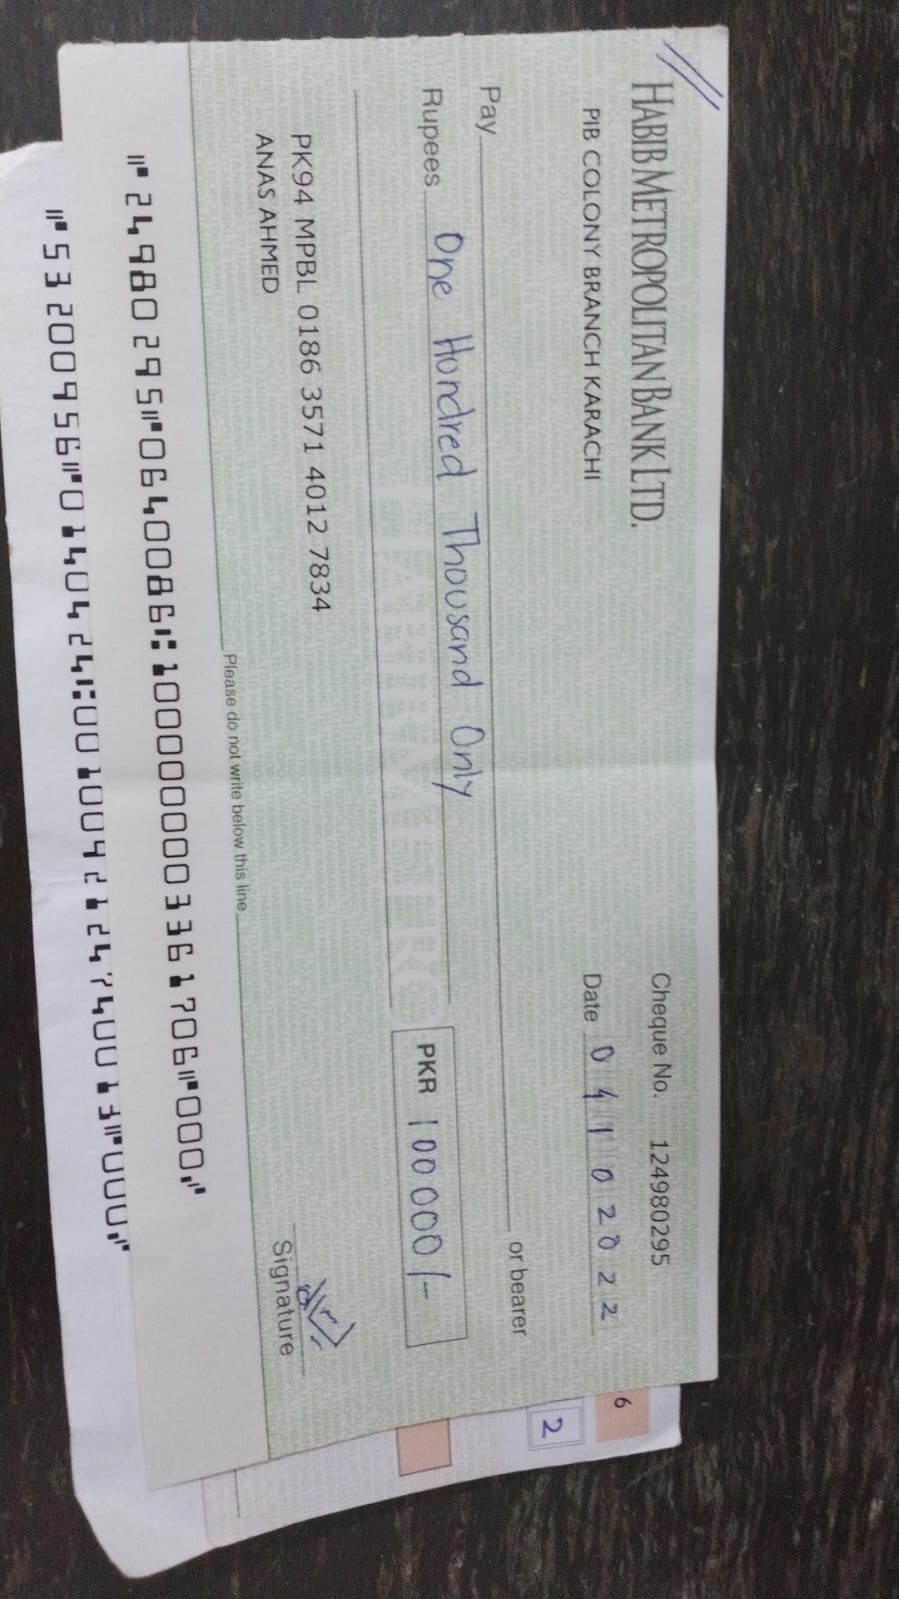 HABIB METROPOLITAN BANK LTD.
PIB COLONY BRANCH KARACHI
Cheque No. 124980295
Date 04102022
Pay
or bearer
Rupees One Hundred Thousand Only
PKR 100000/-
PK94 MPBL 0186 3571 4012 7834
ANAS AHMED
Signature
Please do not write below this line
⑈24980295⑈0640086⑆1000000003361706⑈000⑈
6
2